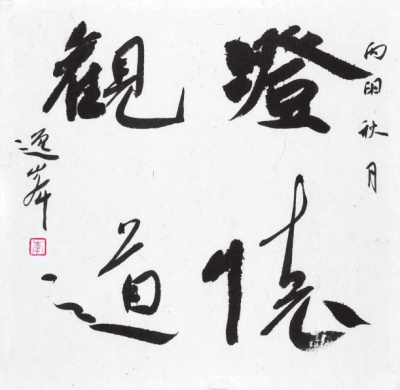 丙申秋月
澄懷
觀道
逸峯